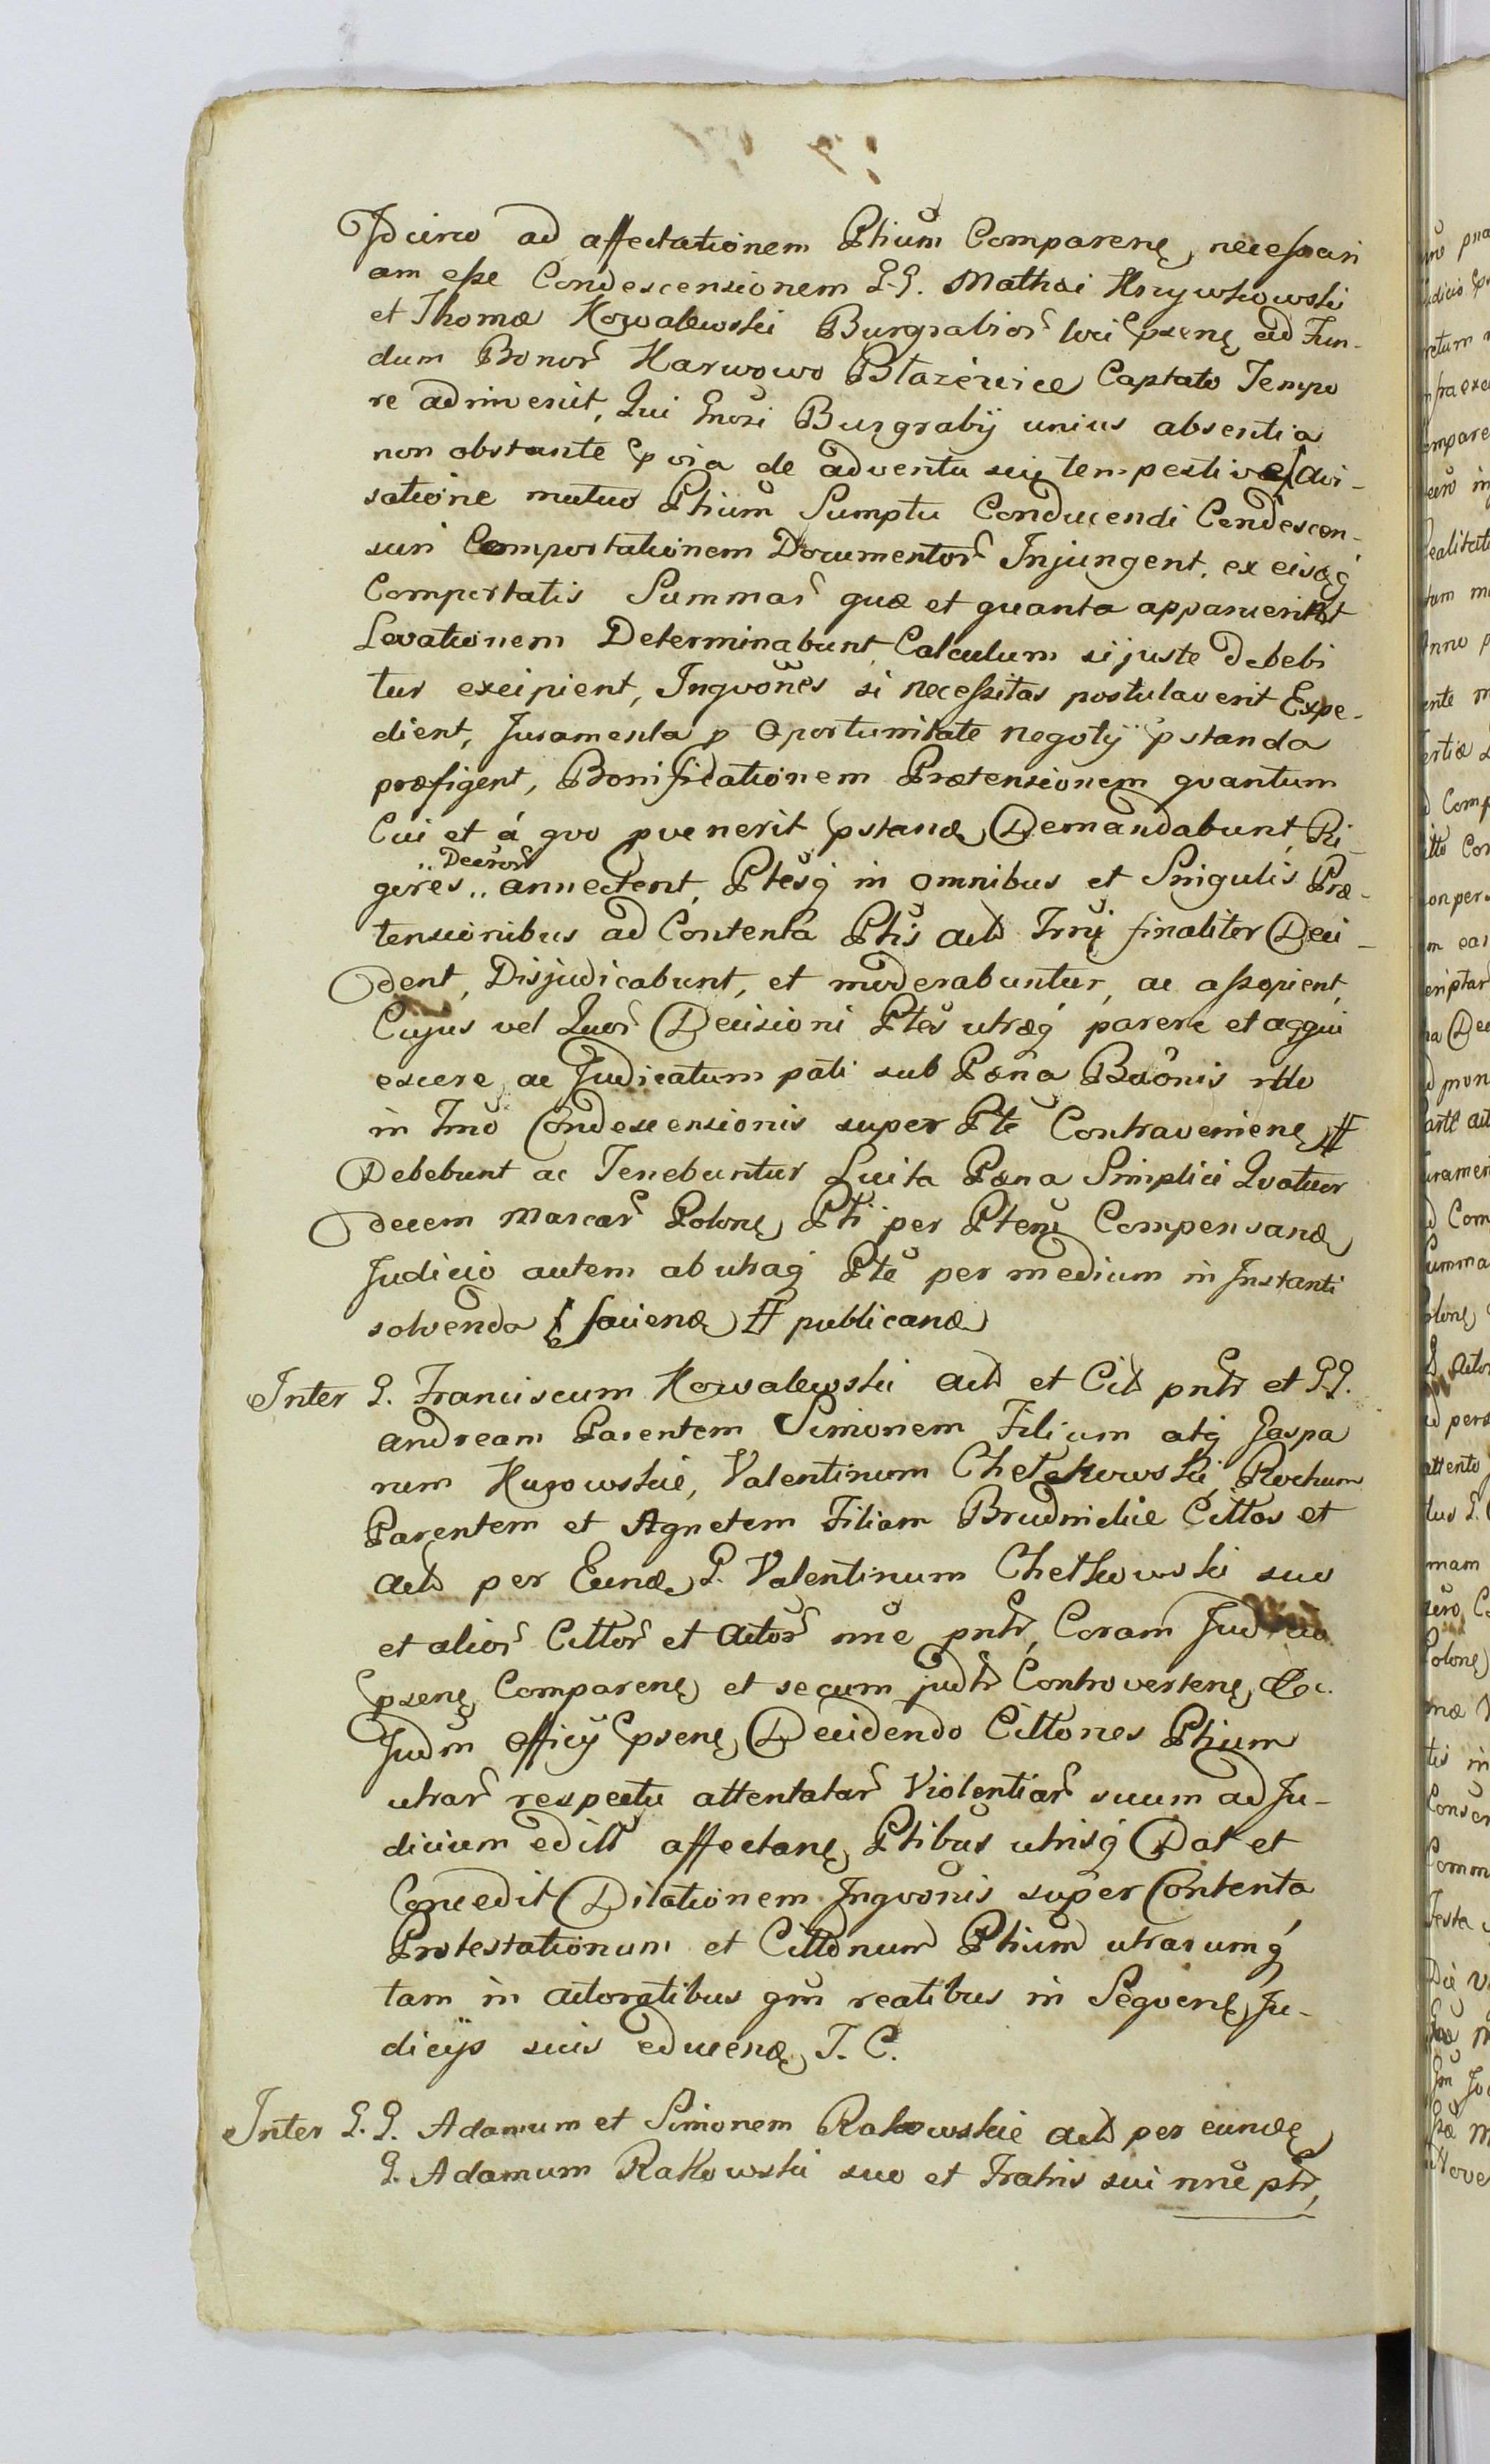 Idcirco ad affectationem Ptium Comparenę, necessari
am esse Condescensionem G.G. Mathæi Krzywkowski
et Thomæ Kowalewski Burgrabior loci psenę ad Fun-
dum Bonor Karwowo Błazeiewice Captato Tempo
re adinvenit, Qui Gnosi Burgrabij unius absentia
non obstante pvia de adventu sui tempestive avi-
satione mutuo Ptium Sumptu Conducendi Condescen-
suri Comportationem Documentor Injungent, ex eisqꝫ
Comportatis Summar quæ et quanta apparuerint
Levationem Determinabunt Calculum si juste debebi
tur excipient, Inqvones si necessitas postulaverit Expe-
dient, Juramenta p Oportunitate negotij pstanda
præfigent, Bonificationem Prætensionem qvantum
Cui et á qvo pvenerit pstandę Demandabunt, Ri-
Decror
gores annectent, Ptesqꝫ in omnibus et Singulis Præ-
tensionibus ad Contenta Ptis act Trni finaliter Deci-
dent, Disjudicabunt, et moderabuntur, ac assopient,
Cujus vel Quor Decisioni Ptes utræqꝫ parere et acqui
escere ac Judicatum pati sub Pæna Baõnis
in Tmo Condescensionis super Pte Contravenienę
Debebunt ac Tenebuntur Luita Pæna Simplici Qvatuor
decem Marcar Polonę Pti per Ptem Compensandę
Judicio autem ab utraqꝫ Pte per medium in Instanti
solvenda faciendę publicandę
Inter G. Franciscum Kowalewski act et Cit pntr et G.G.
Andream Parentem Simonem Filium atqꝫ Jaspa
rum Kurowskie, Valentinum Chetkowski, Rochum
Parentem et Agnetem Filiam Brudnickie Cittos et
act per Eundę G. Valentinum Chetkowski suo
et alior Cittor et Actor nne pntr, Coram Judicio
psenę Comparenę et secum judtr Controvertenę &c.
Judm officij psenę Decidendo Cittones Ptium
utrar respectu attentatar Violentiar suum ad Ju-
dicium edit affectanę Ptibus utrisqꝫ Dat et
Concedit Dilationem Inqvonis super Contenta
Protestationum et Cittonum Ptium utrarumqꝫ
tam in actoratibus qm reatibus in Seqvenę Ju-
dicijs suis educendę T. C.
Inter G.G. Adamum et Simonem Rakowskie act per eundę
G. Adamum Rakowski suo et Fratris sui nne ptr,